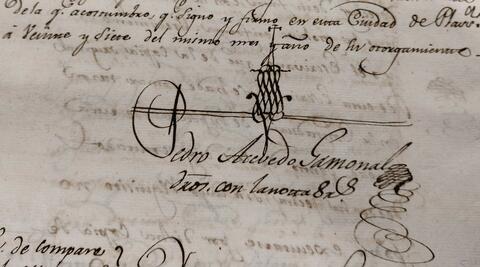 de la q.e acostumbro, q.e signo y firmo en esta Ciudad de Plas.a
a Veinte y Siete del mismo mes y año de su otorgamiento
Pedro Acevedo Gamonal
dros. con la nota
de compare